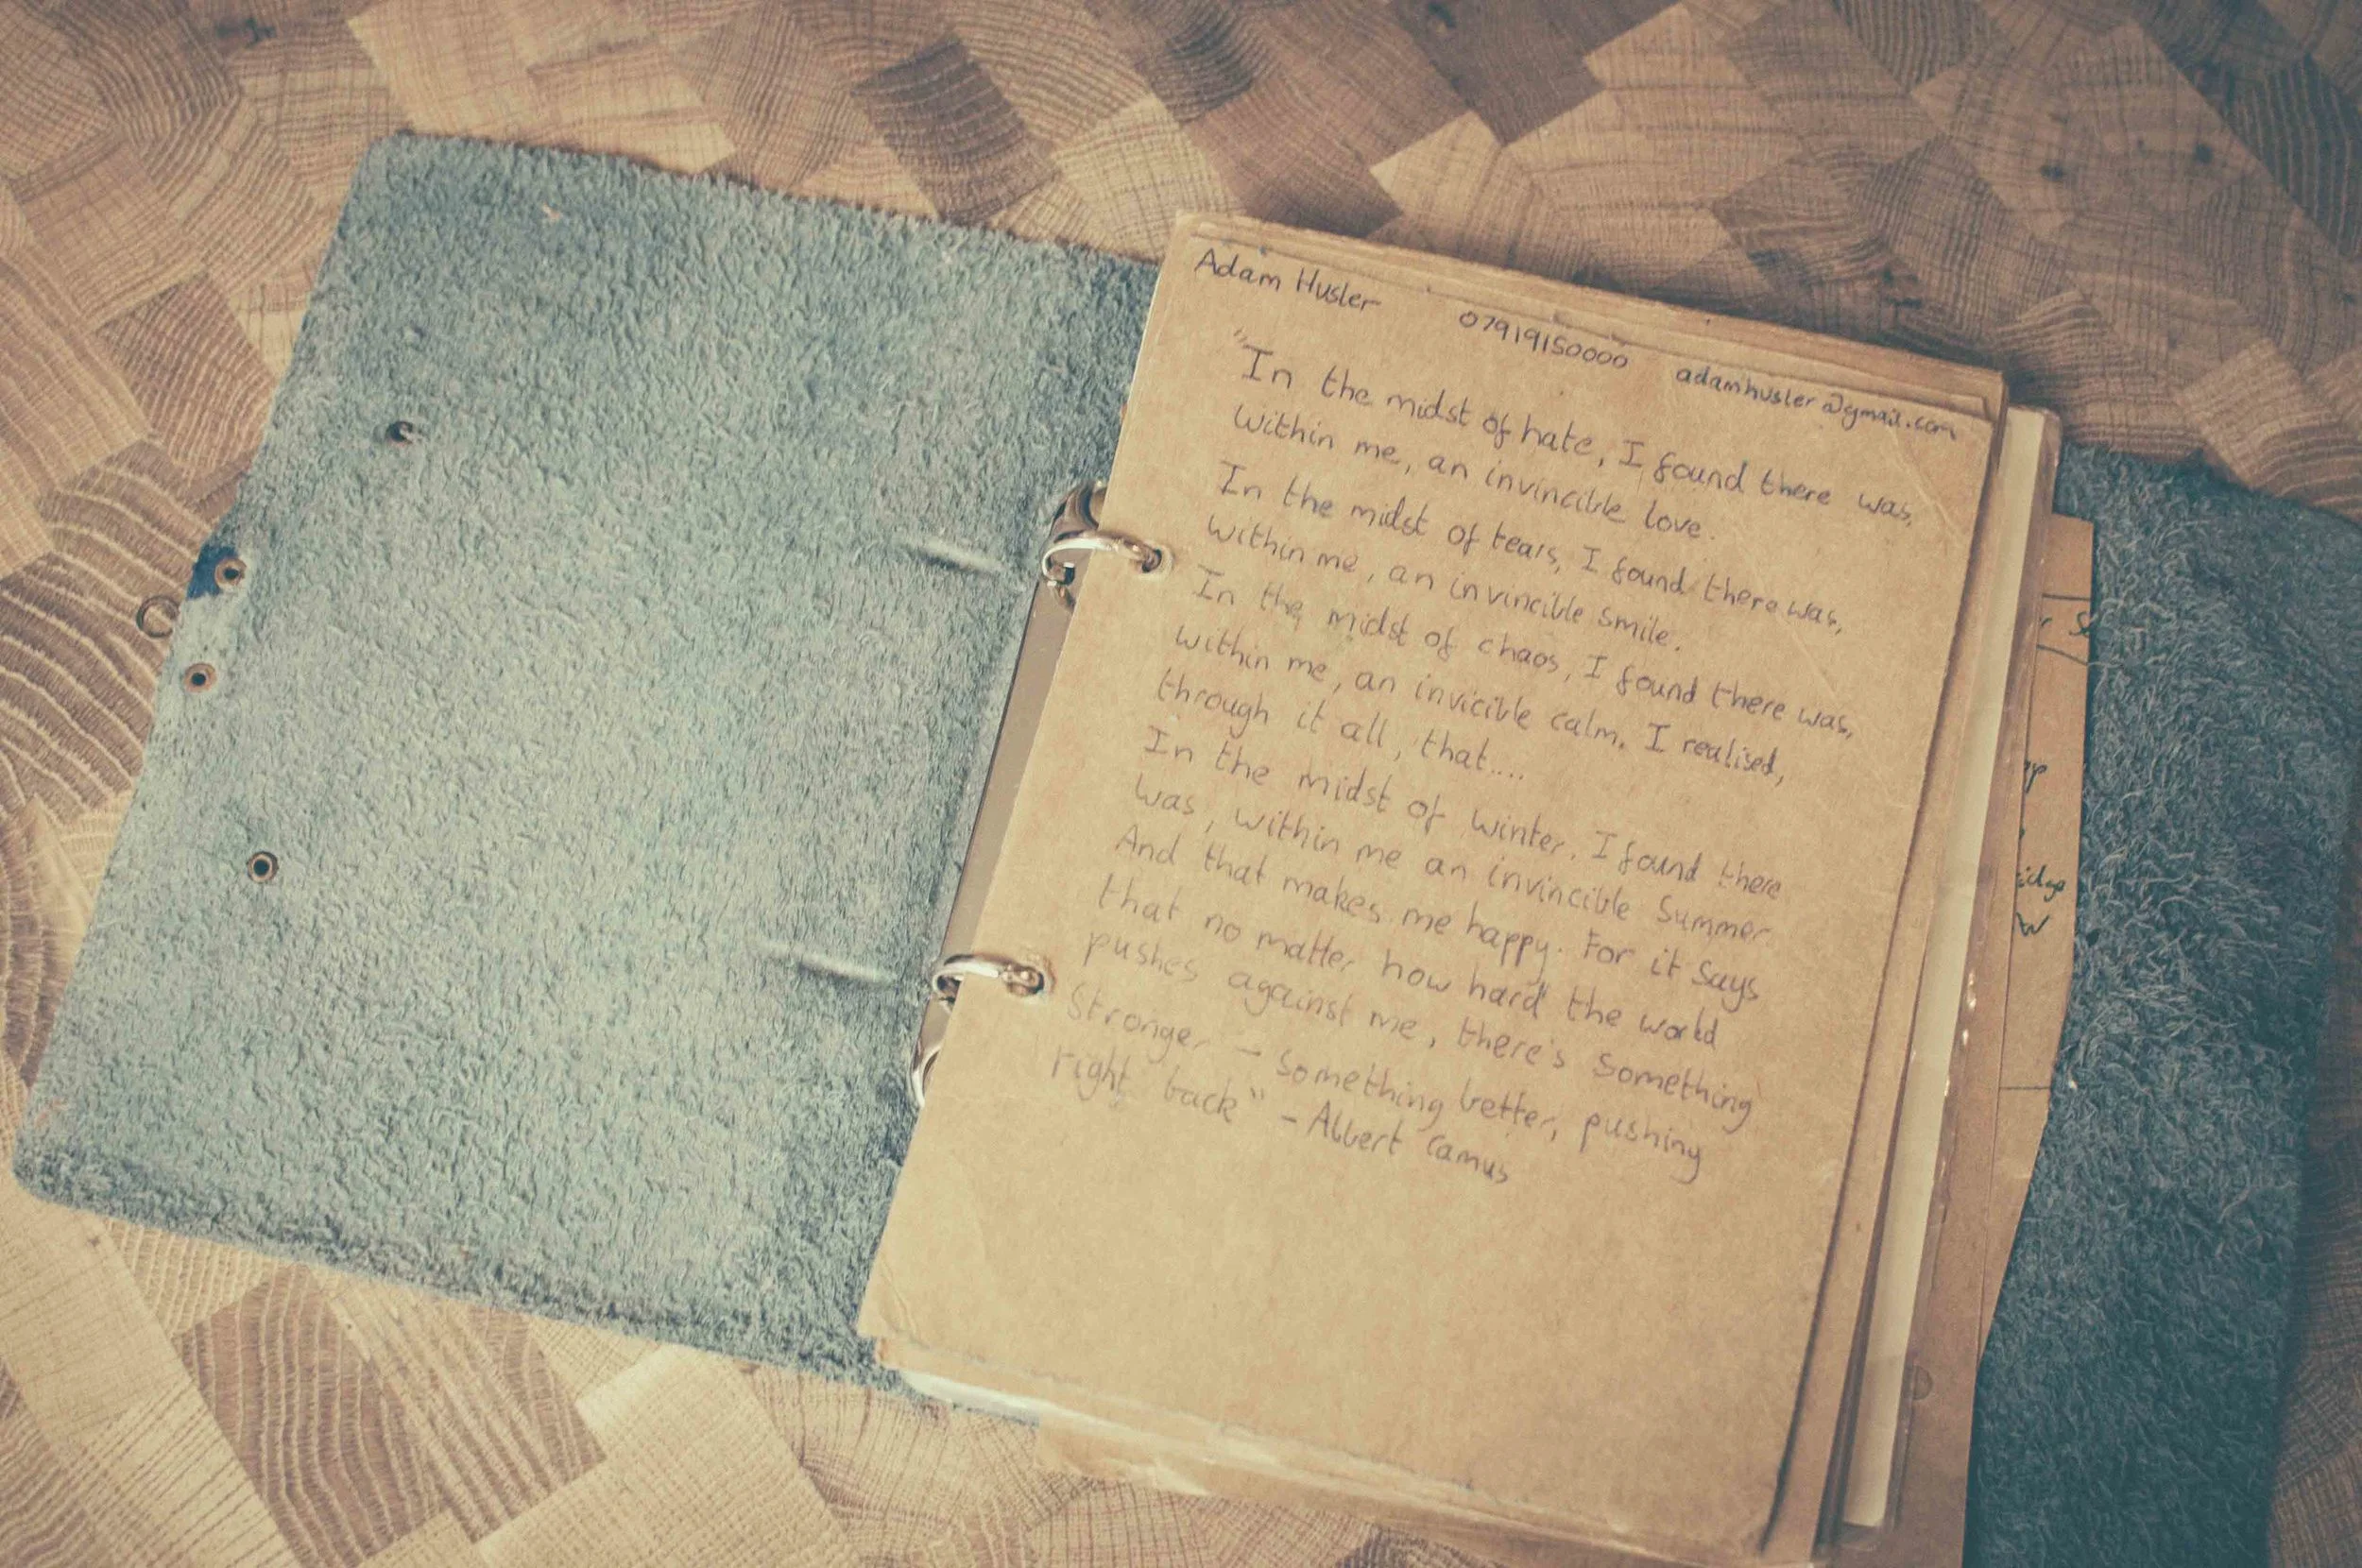 Adam Husler 07919150000 adamhusler@gmail.com
"In the midst of hate, I found there was,
within me, an invincible love.
In the midst of tears, I found there was,
within me, an invincible smile.
In the midst of chaos, I found there was,
within me, an invicible calm. I realised,
through it all, that....
In the midst of winter, I found there
was, within me an invincible Summer.
And that makes me happy. For it says
that no matter how hard the world
pushes against me, there's something
Stronger - something better, pushing
right back" - Albert Camus